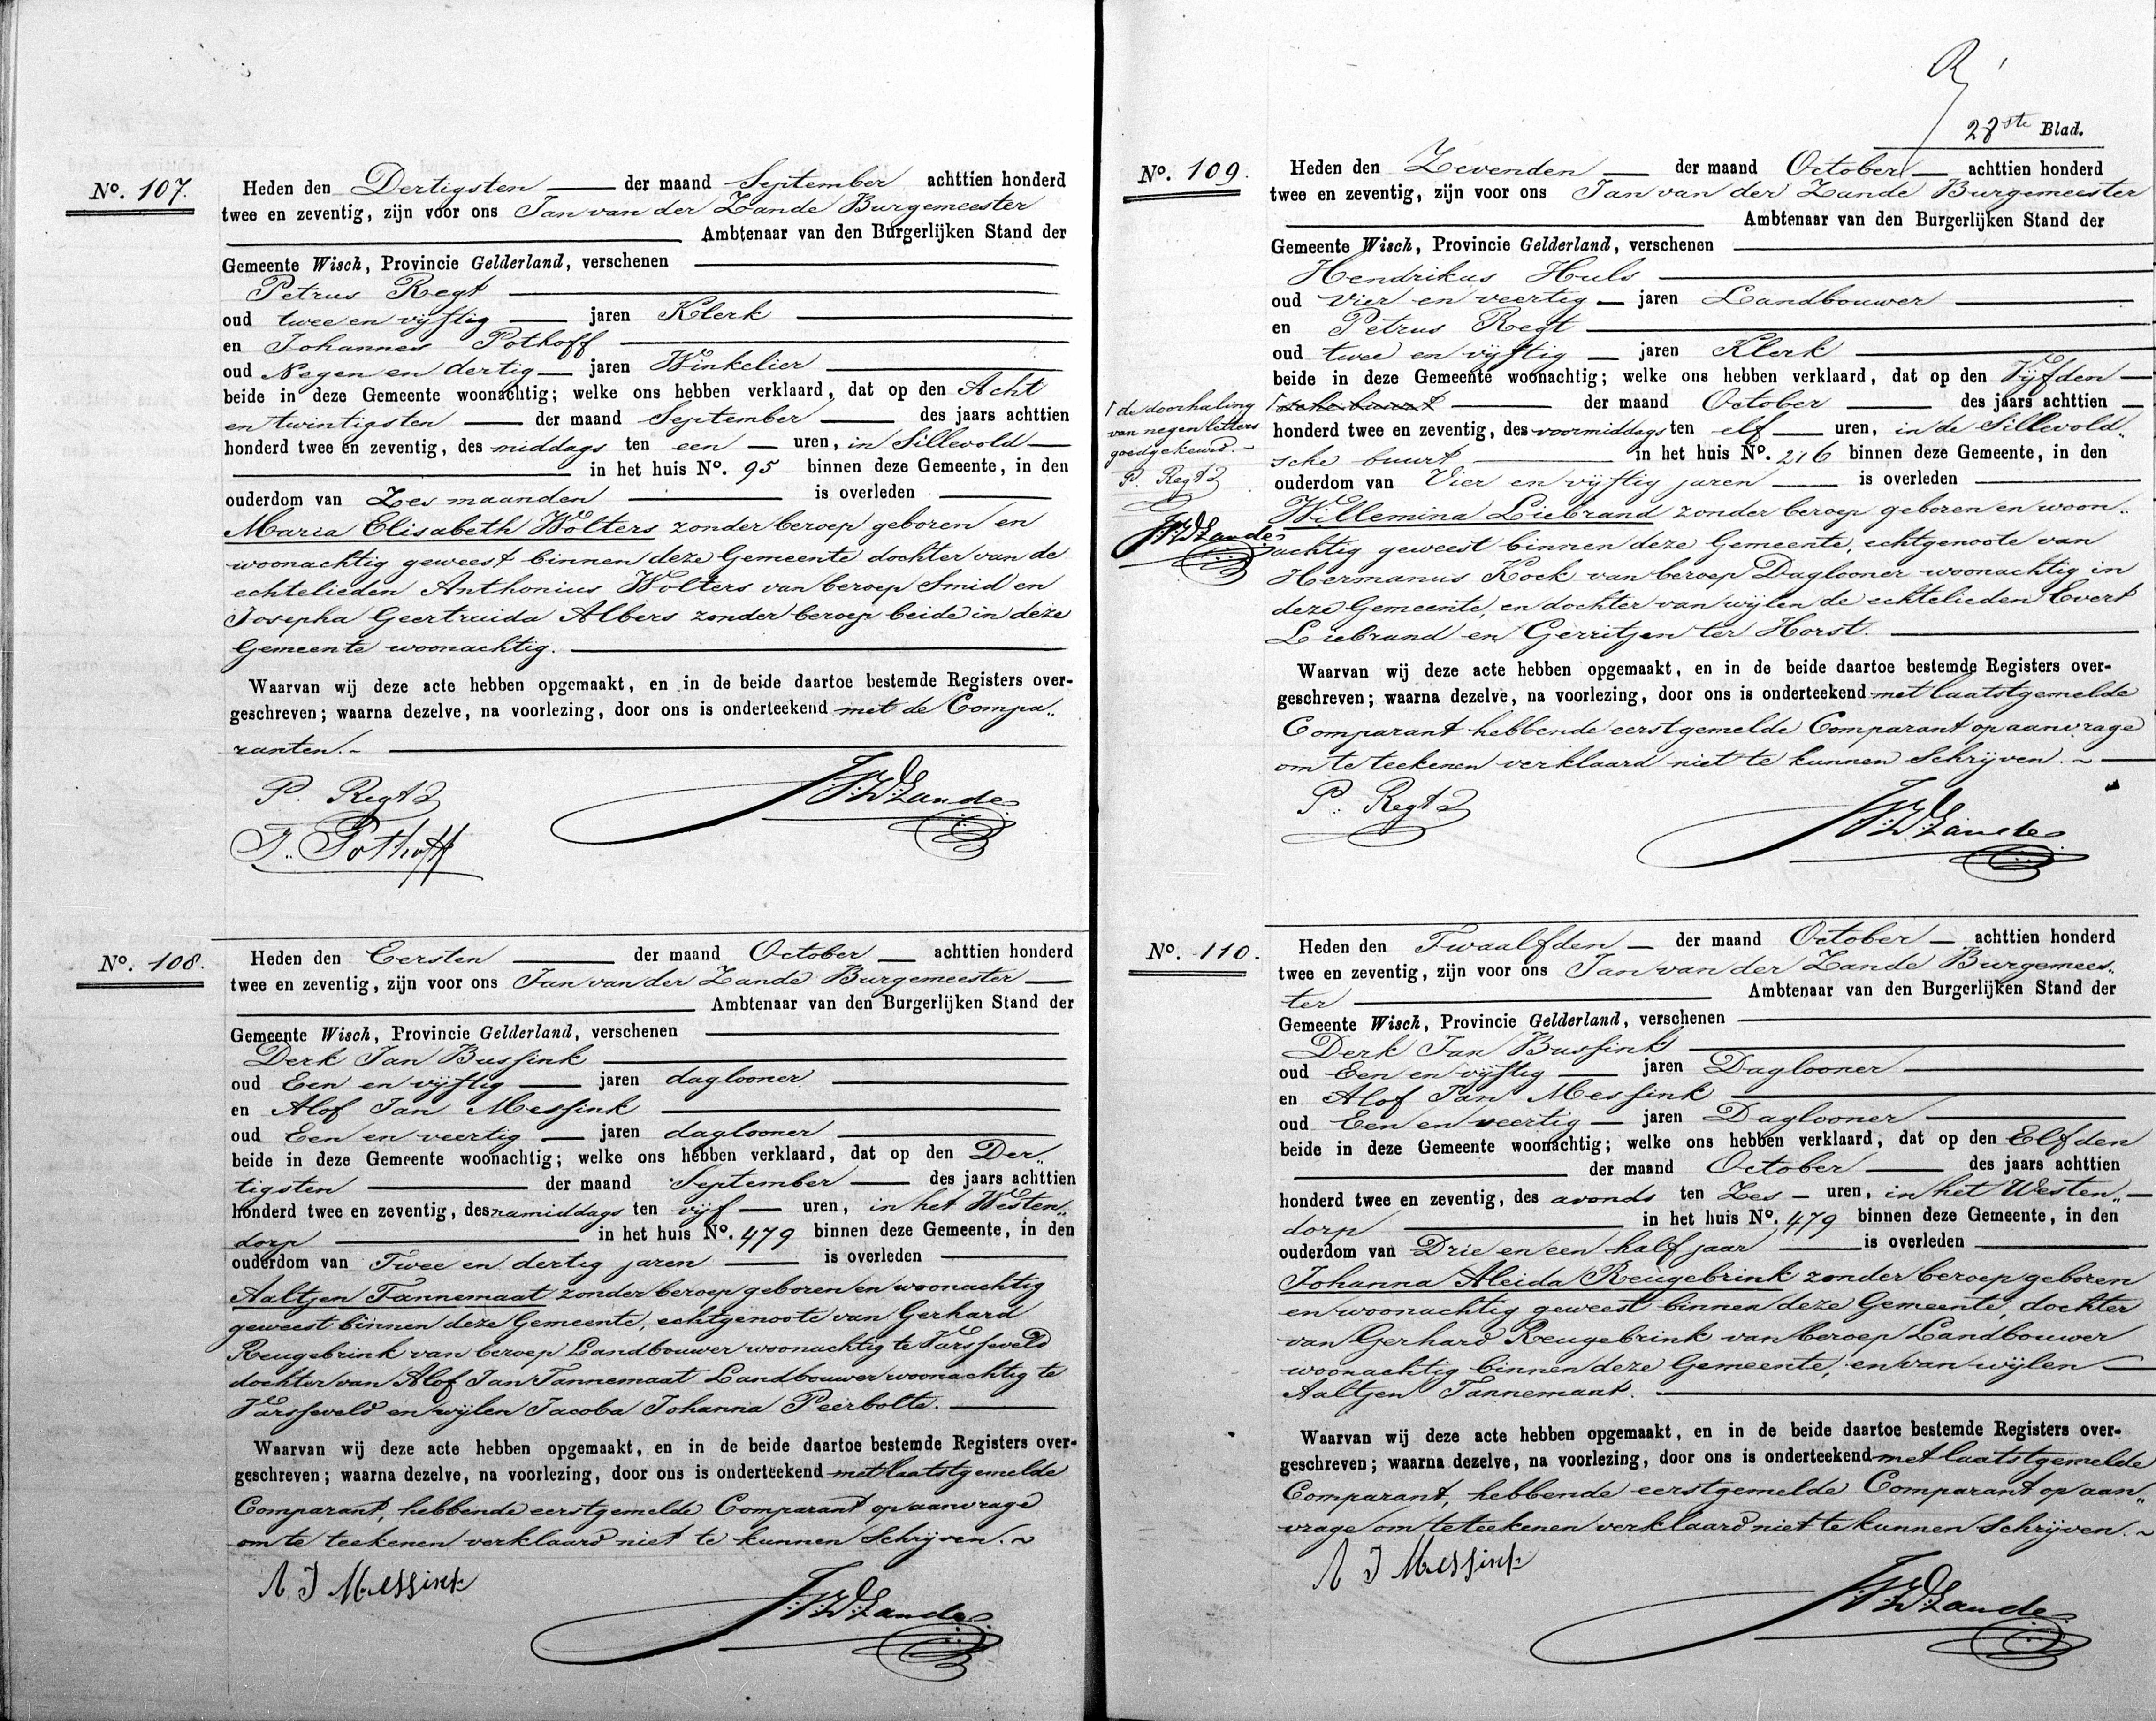 No. 107.
Heden den Dertigsten der maand September achttien honderd
twee en zeventig, zijn voor ons Jan van der Zande Burgemeester
Ambtenaar van den Burgerlijken Stand der
Gemeente Wisch, Provincie Gelderland, verschenen
Petrus Regt
oud twee en vijftig jaren Klerk
en Johannes Pothoff
oud Negen en dertig jaren Winkelier
beide in deze Gemeente woonachtig; welke ons hebben verklaard, dat op den Acht
en twintigsten der maand September des jaars achttien
honderd twee en zeventig, des middags ten een uren, in Sillevold
in het huis No. 95 binnen deze Gemeente, in den
ouderdom van Zes maanden is overleden
Maria Elisabeth Wolters zonder beroep geboren en
woonachtig geweest binnen deze Gemeente dochter van de
echtelieden Anthonius Wolters van beroep Smid en
Josepha Geertruida Albers zonder beroep beide in deze
Gemeente woonachtig.
Waarvan wij deze acte hebben opgemaakt, en in de beide daartoe bestemde Registers over-
geschreven; waarna dezelve, na voorlezing, door ons is onderteekend met de Compa„
ranten.
P. Regt
J. Pothoff
JVDZande
No. 108.
Heden den Eersten der maand October achttien honderd
twee en zeventig, zijn voor ons Jan van der Zande Burgemeester
Ambtenaar van den Burgerlijken Stand der
Gemeente Wisch, Provincie Gelderland, verschenen
Derk Jan Bussink
oud Een en vijftig jaren daglooner
en Alof Jan Messink
oud Een en veertig jaren daglooner
beide in deze Gemeente woonachtig; welke ons hebben verklaard, dat op den Der„
tigsten der maand September des jaars achttien
honderd twee en zeventig, des namiddags ten vijf uren, in het Westen„
dorp in het huis No. 479 binnen deze Gemeente, in den
ouderdom van Twee en dertig jaren is overleden
Aaltjen Tannemaat zonder beroep geboren en woonachtig
geweest binnen deze Gemeente, echtgenoote van Gerhard
Reugebrink van beroep Landbouwer woonachtig te Varsseveld
dochter van Alof Jan Tannemaat Landbouwer woonachtig te
Varsseveld en wijlen Jacoba Johanna Peerbolte.
Waarvan wij deze acte hebben opgemaakt, en in de beide daartoe bestemde Registers over-
geschreven; waarna dezelve, na voorlezing, door ons is onderteekend met laatstgemelde
Comparant, hebbende eerstgemelde Comparant op aanvrage
om te teekenen verklaard niet te kunnen Schrijven.
A J Messink
JVDZande
28ste Blad.
No. 109.
Heden den Zevenden der maand October achttien honderd
twee en zeventig, zijn voor ons Jan van der Zande Burgemeester
Ambtenaar van den Burgerlijken Stand der
Gemeente Wisch, Provincie Gelderland, verschenen
Hendrikus Huls
oud Vier en veertig jaren Landbouwer
en Petrus Regt
oud twee en vijftig jaren Klerk
beide in deze Gemeente woonachtig; welke ons hebben verklaard, dat op den Vijfden
sche buurt der maand October des jaars achttien
honderd twee en zeventig, des voormiddags ten elf uren, in de Sillevold„
sche buurt in het huis No. 216 binnen deze Gemeente, in den
ouderdom van Vier en vijftig jaren is overleden
Willemina Liebrand zonder beroep geboren en woon„
achtig geweest binnen deze Gemeente, echtgenoote van
Hermanus Kock van beroep Daglooner woonachtig in
deze Gemeente, en dochter van wijlen de echtelieden Evert
Liebrand en Gerritjen ter Horst.
de doorhaling
van negen letters
goedgekeurd.
P. Regt
JVDZande
Waarvan wij deze acte hebben opgemaakt, en in de beide daartoe bestemde Registers over-
geschreven; waarna dezelve, na voorlezing, door ons is onderteekend met laatstgemelde
Comparant hebbende eerstgemelde Comparant op aanvrage
om te teekenen verklaard niet te kunnen Schrijven.
P. Regt
JVDZande
No. 110.
Heden den Twaalfden der maand October achttien honderd
twee en zeventig, zijn voor ons Jan van der Zande Burgemees„
ter Ambtenaar van den Burgerlijken Stand der
Gemeente Wisch, Provincie Gelderland, verschenen
Derk Jan Bussink
oud Een en vijftig jaren Daglooner
en Alof Jan Messink
oud Een en veertig jaren Daglooner
beide in deze Gemeente woonachtig; welke ons hebben verklaard, dat op den Elfden
der maand October des jaars achttien
honderd twee en zeventig, des avonds ten Zes uren, in het Westen„
dorp in het huis No. 479 binnen deze Gemeente, in den
ouderdom van Drie en een half jaar is overleden
Johanna Aleida Reugebrink zonder beroep geboren
en woonachtig geweest binnen deze Gemeente, dochter
van Gerhard Reugebrink van beroep Landbouwer
woonachtig binnen deze Gemeente, en van wijlen
Aaltjen Tannemaat.
Waarvan wij deze acte hebben opgemaakt, en in de beide daartoe bestemde Registers over-
geschreven; waarna dezelve, na voorlezing, door ons is onderteekend met laatstgemelde
Comparant, hebbende eerstgemelde Comparant op aan„
vrage om te teekenen verklaard niet te kunnen Schrijven.
A J Messink
JVDZande